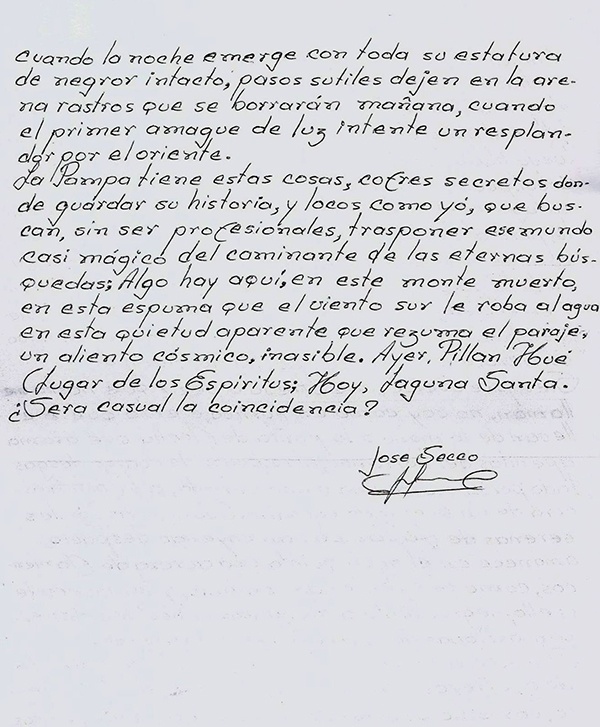 cuando la noche emerge con toda su estatura
de negror intacto, pasos sutiles dejen en la are-
na rastros que se borrarán mañana, cuando
el primer amague de luz intente un resplan-
dor por el oriente.
La Pampa tiene estas cosas, cofres secretos don-
de guardar su historia, y locos como yó, que bus-
can, sin ser profesionales, trasponer ese mundo
casi mágico del caminante de las eternas bús-
quedas; Algo hay aquí, en este monte muerto,
en esta espuma que el viento sur le roba al agua
en esta quietud aparente que rezuma el paraje,
un aliento cósmico, inasible. Ayer, Pillan Hué
(Lugar de los Espiritus; Hoy, Laguna Santa.
¿Sera casual la coincidencia?
Jose Secco